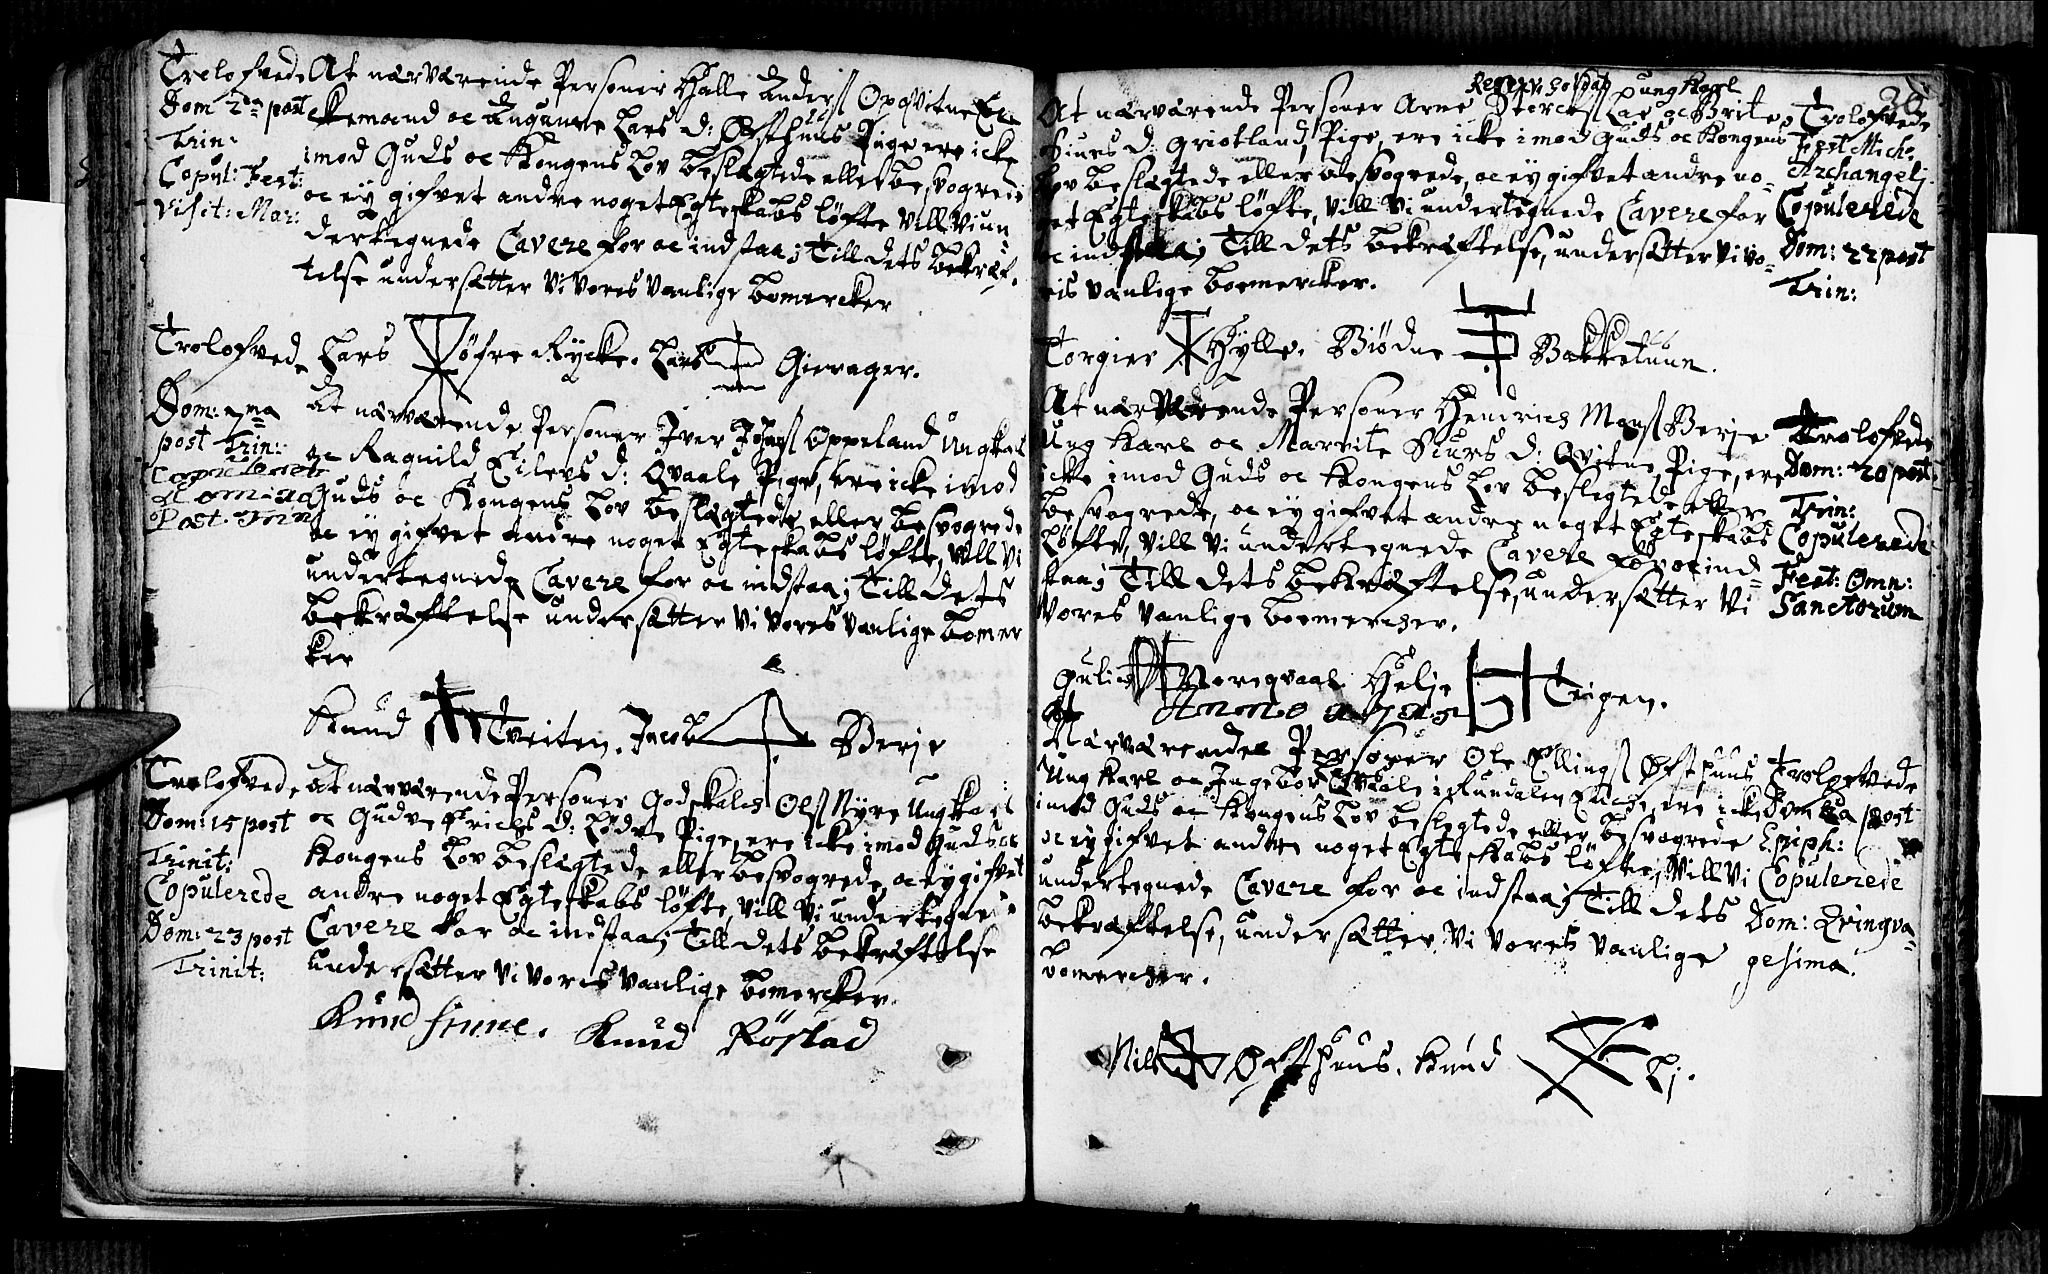 Trolofvede
Dom 2da post
Trin:
Copul: Fest:
Visit: Mar:
At nærværende Personer Halle Anders Opqvitne
Ekemand oc Lars d: Østhuus Pige ere icke
imod Guds oc Kongens Lov beslægtede eller besvogrede
oc ey gifvet andre noget Egteskabs løfte Vill Vi un
dertegnede Cavere for oc indstaa; Till dets bekræf,
telse undersætter Vi Vores Vanlige bomercker
Lars øfre Rycke. Lars Gierager.
Trolofvede
Dom:
post Trin:
Copulerede
Dom: 20
Post. Trin
At nærværende Personer Iver Johans Oppeland Ungkarl
oc Ragnild Eilefs d: Qvaale Pige, ere icke imod
Guds oc Kongens Lov beslægtede eller besvogrede
oc ey gifvet andre noget Egteskabs løfte, Vill Vi
undertegnede Cavere for oc indstaa; Till dets
bekræftelse undersætter Vi Vores Vanlige bomer
ker
Knud Tveiten. Jacob Berje
Trolofvede
Dom: 15 post
Trinit:
Copulerede
Dom: 23 post
Trinit:
At nærværende Personer Godskalch Ols Nyre Ungkarl
oc Gudve Erichs d: Lødve Pige, ere icke imod Guds oc
Kongens Lov beslægtede eller besvogrede, oc ey gifvet
andre noget Egteskabs løfte, Vill Vi undertegnede
Cavere for oc indstaa; Till dets bekræftelse
undersætter Vi Voris Vanlige bomercker.
Knud finne. Knud Røstad
Reserv. Soldat ung Karl
At nærværende Personer Arne Storck Lae oc Brite
Siurs d: Griotland, Pige, ere icke imod Guds oc Kongens
Lov beslægtede eller besvogrede, oc ey gifvet andre no-
get Egteskabs løfte, Vill Vi undertegnede Cavere for
oc indstaa; Till dets bekræftelse, undersætter Vi Vo-
ris Vanlige boemercker.
30
Trolofvede
Fest Mich:
Archangelj
Copulerede
Dom: 22 post
Trin:
Torgier Hylle. Biødne Backetuun.
At nærværende Personer Hendrich Mons Berje
Ung Karl oc Marrite Siurs d: Qvitne, Pige, ere
icke imod Guds oc Kongens Lov beslegtede eller
besvogrede, oc ey gifvet andre noget Egteskabs
Løfte, Vill Vi undertegnede Cavere for oc ind-
staa; Till dets bekræftelse, undersætter Vi
Vores Vanlige boemercker.
Trolofvede
Dom: 20 post
Trin:
Copulerede
Fest: Omn:
Sanctorum
Gulic Noreqvaal Helje Teigen.
Anno
At
Nærværende Personer Ole Ellings Østhuus
Ung Karl oc Ingebor Qvaale i Rundalen Encke, ere icke
imod Guds oc Kongens Lov beslegtede eller besvogrede
oc ey gifvet andre noget Egteskabs løfte, Vill Vi
undertegnede Cavere for oc indstaa; Till dets
bekræftelse, undersætter Vi Vores Vanlige
bomercker.
Trolofvede
Dom: 2da post
Epiph:
Copulerede
Dom: Qvinqva-
gesima.
Nils Østhuus. Knud Lj.